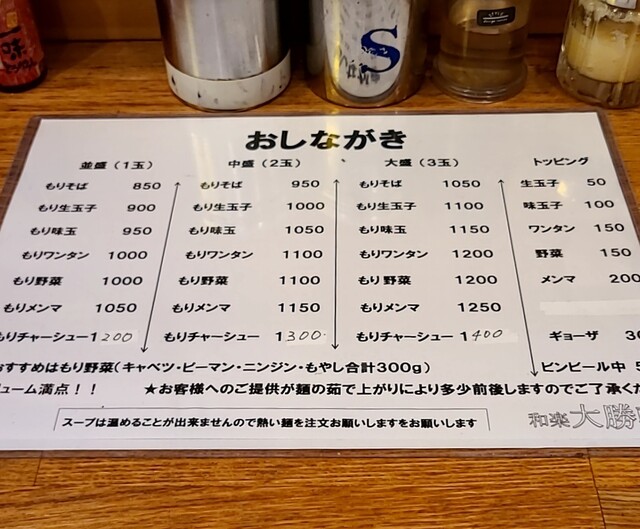 一味
S
おしながき
並盛(1玉) 中盛(2玉) 大盛(3玉) トッピング
もりそば 850 もりそば 950 もりそば 1050 生玉子 50
もり生玉子 900 もり生玉子 1000 もり生玉子 1100 味玉子 100
もり味玉 950 もり味玉 1050 もり味玉 1150 ワンタン 150
もりワンタン 1000 もりワンタン 1100 もりワンタン 1200 野菜 150
もり野菜 1000 もり野菜 1100 もり野菜 1200 メンマ 200
もりメンマ 1050 もりメンマ 1150 もりメンマ 1250
もりチャーシュー1200 もりチャーシュー 1300 もりチャーシュー1400 ギョーザ
おすすめはもり野菜(キャベツ・ピーマン・ニンジン・もやし合計300g) ビンビール中
ューム満点!! ★お客様へのご提供が麺の茹で上がりにより多少前後しますのでご了承くだ
スープは温めることが出来ませんので熱い麺を注文お願いしますをお願いします
和楽 大勝